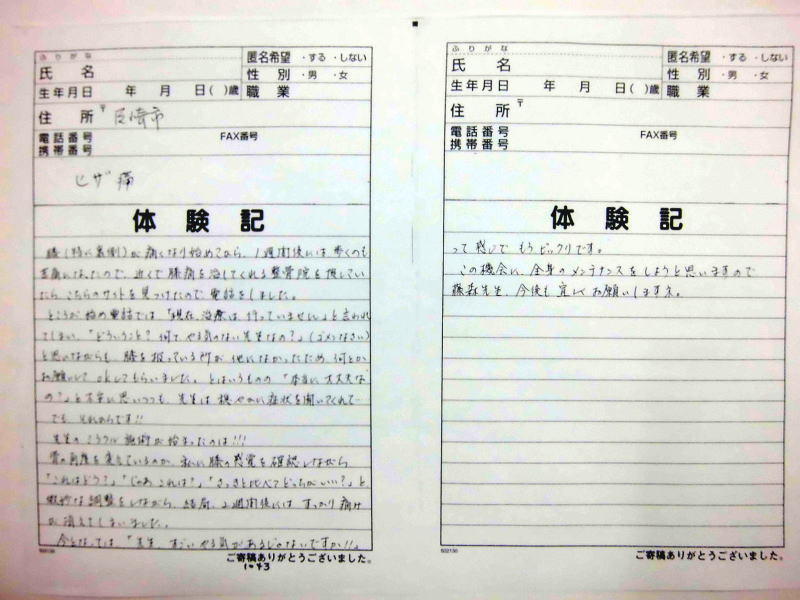 ふりがな
氏 名
匿名希望 ・する ・しない
性 別 ・男 ・女
生年月日 年 月 日( )歳
職 業
住 所 〒 尼崎市
電話番号 FAX番号
携帯番号
ヒザ痛
体験記
膝(特に裏側)が痛くなり始めてから、1週間後には歩くのも
苦痛になったので、近くで膝痛を治してくれる整骨院を探してい
たら、こちらのサイトを見つけたので電話をしました。
ところが始め電話では「現在、治療は、行っていません」と言われ
てしまい、「どういうこと?何て やる気のない先生なの?」(ゴメンなさい)
と思いながらも、膝を扱っている所が 他になかったため、何とか
お願いして OKしてもらいました。とはいうものの「本当に大丈夫な
の?」と不安に思いつつも、先生は 症状を聞いてくれて…
でも、それからです!!
先生のミラクル施術が始まったのは!!!
骨の角度を変えているのか、私に膝の感覚を確認しながら
「これはどう?」「じゃあ、これは?」「さっきと比べてどっちがいい?」と
微妙な調整をしながら、結局、2週間後には すっかり痛み
が消えてしまいました。
今となっては「先生、すごい やる気があるじゃないですか!!」
602130
ご寄稿ありがとうございました。
1043
ふりがな
氏 名
匿名希望 ・する ・しない
性 別 ・男 ・女
生年月日 年 月 日( )歳
職 業
住 所 〒
電話番号 FAX番号
携帯番号
体験記
って感じで もう ビックリです。
この機会に、全身のメンテナンスをしようと思いますので
藤森先生、今後も宜しくお願いしますネ。
602130
ご寄稿ありがとうございました。